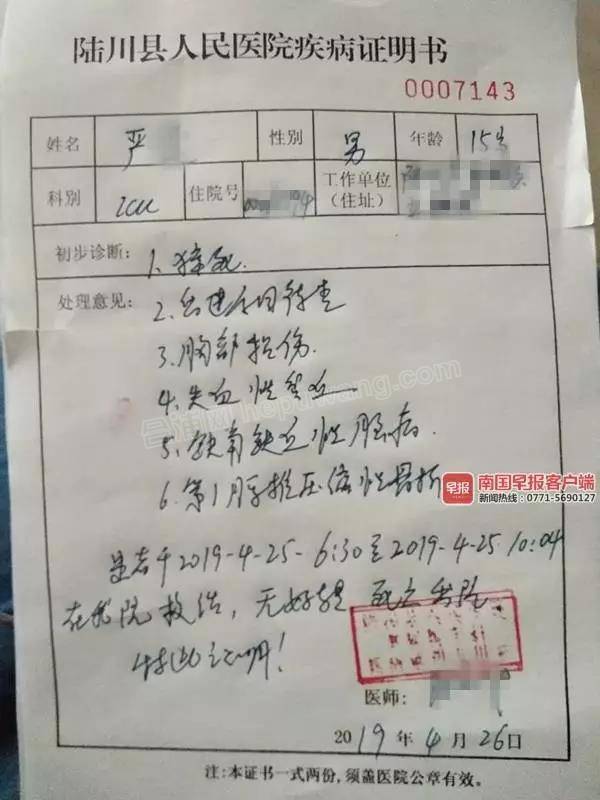 陆川县人民医院疾病证明书
0007143
姓名 严 性别 男 年龄 15岁
科别 ICU 住院号 工作单位（住址）
初步诊断：1.猝死
处理意见：2.出血原因待查
3.胸部损伤.
4.失血性贫血
5.缺氧缺血性脑病
6.第1腰椎压缩性骨折
患者于2019-4-25-6:30至2019-4-25.10:04
在我院救治，无好转 死亡出院
特此证明！
合浦网 hepuwang.com
早报 南国早报客户端
新闻热线：0771-5690127
医师：
2019年4月26日
注：本证书一式两份，须盖医院公章有效。